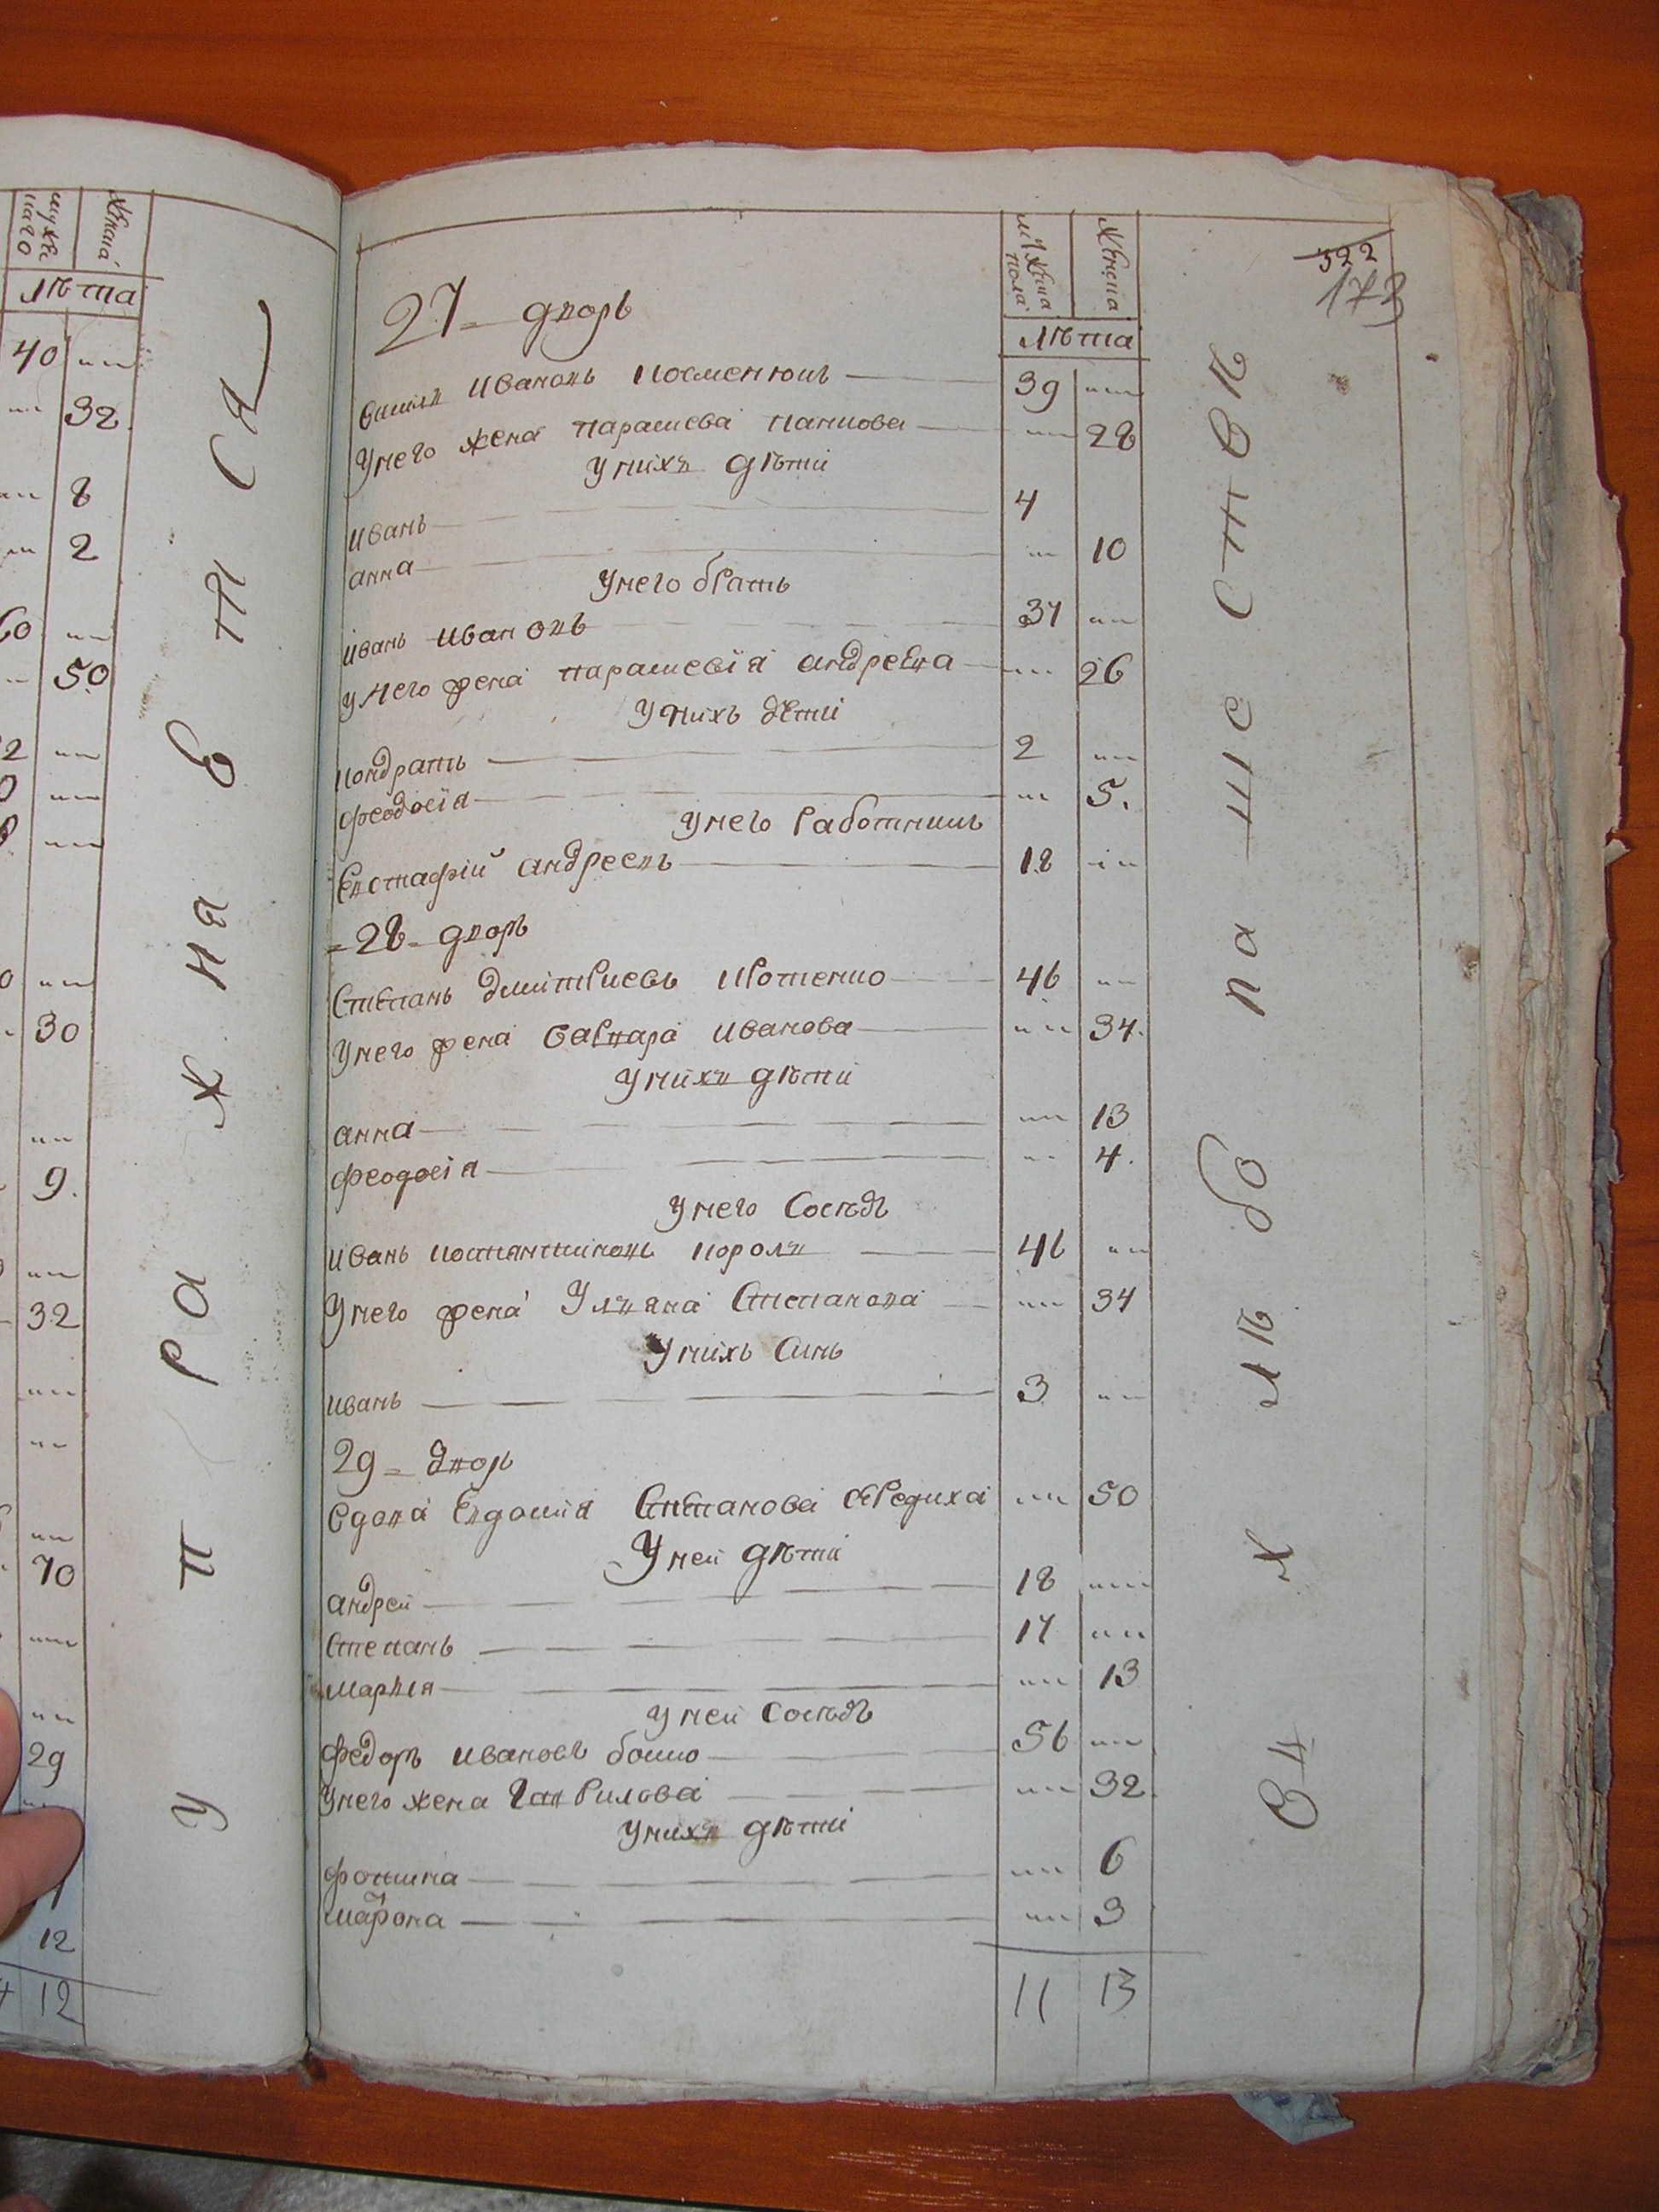 мужеска
женска
лѣта
40
32
8
2
50
30
9.
32
70
29
12
12
упражняется
322
173
мужеска пола
женска
лѣта
27 = дворъ
Ивановъ 39
Унего жена параскева 28
Унихъ дѣти
Иванъ 4
анна 10
Унего братъ
Иванъ Ивановъ 31
Унего жена параскевія андреева 26
Унихъ дѣти
Кондратъ 2
феодосія 5.
Унего работникъ
Евстафій андреевъ 18
= 28 = дворъ
Степанъ дмитриевъ Кротенко 46
Унего жена варвара Иванова 34.
Унихъ дѣти
анна 13
феодосія 4.
Унего Сосѣдъ
Иванъ Костантиновъ Король 46
Унего жена Улияна Степанова 34
Унихъ Синъ
Иванъ 3
29 = дворъ
вдова Евдокия Степанова 50
Уней дѣти
андрей 18
Степанъ 17
Мария 13
Уней Сосѣдъ
федоръ Ивановъ бойко 56
Унего жена Гаврилова 32.
Унихъ дѣти
фотина 6
матрона 3
11 13
въ хлѣбопашествѣ